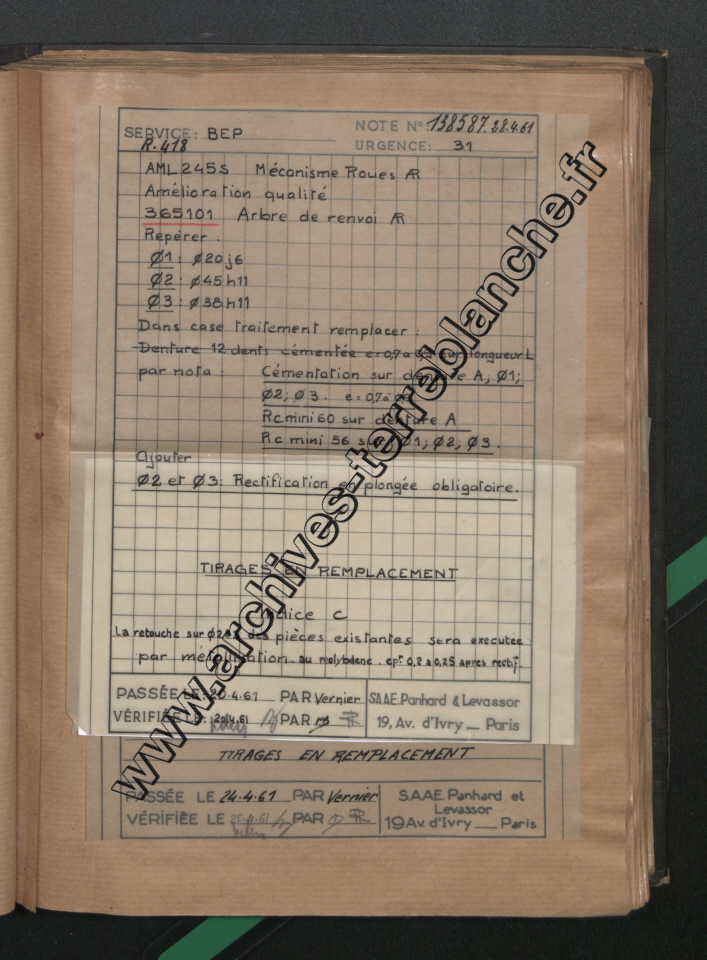 SERVICE: BEP NOTE N° 138587. 28.4.61
R.418 URGENCE: 31
AML 245 S Mécanisme Roues AR
Amélioration qualité
365101 Arbre de renvoi AR
Repérer :
Ø1 : Ø20 j6
Ø2 : Ø45 h11
Ø3 : Ø38 h11
Dans case traitement remplacer :
Denture 12 dents cémentée e=0,7 à 0,9 sur longueur L
par nota : Cémentation sur denture A, Ø1;
Ø2; Ø3. e=0,7 à
Rc mini 60 sur denture A
Rc mini 56 sur Ø1; Ø2; Ø3.
Ajouter
Ø2 et Ø3: Rectification en plongée obligatoire.
TIRAGES EN REMPLACEMENT
Indice C
La retouche sur Ø2 des pièces existantes sera executée
par métallisation au molybdène. epr 0,2 a 0,25 apres rectif.
PASSÉE LE: 20.4.61 PAR Vernier S.A.A.E. Panhard & Levassor
VÉRIFIÉE LE: 20.4.61 PAR 19, Av. d'Ivry _ Paris
TIRAGES EN REMPLACEMENT
PASSÉE LE 24.4.61 PAR Vernier S.A.A.E. Panhard et
Levassor
VÉRIFIÉE LE 25.4.61 PAR 19 Av. d'Ivry __ Paris
www.archives-terreblanche.fr